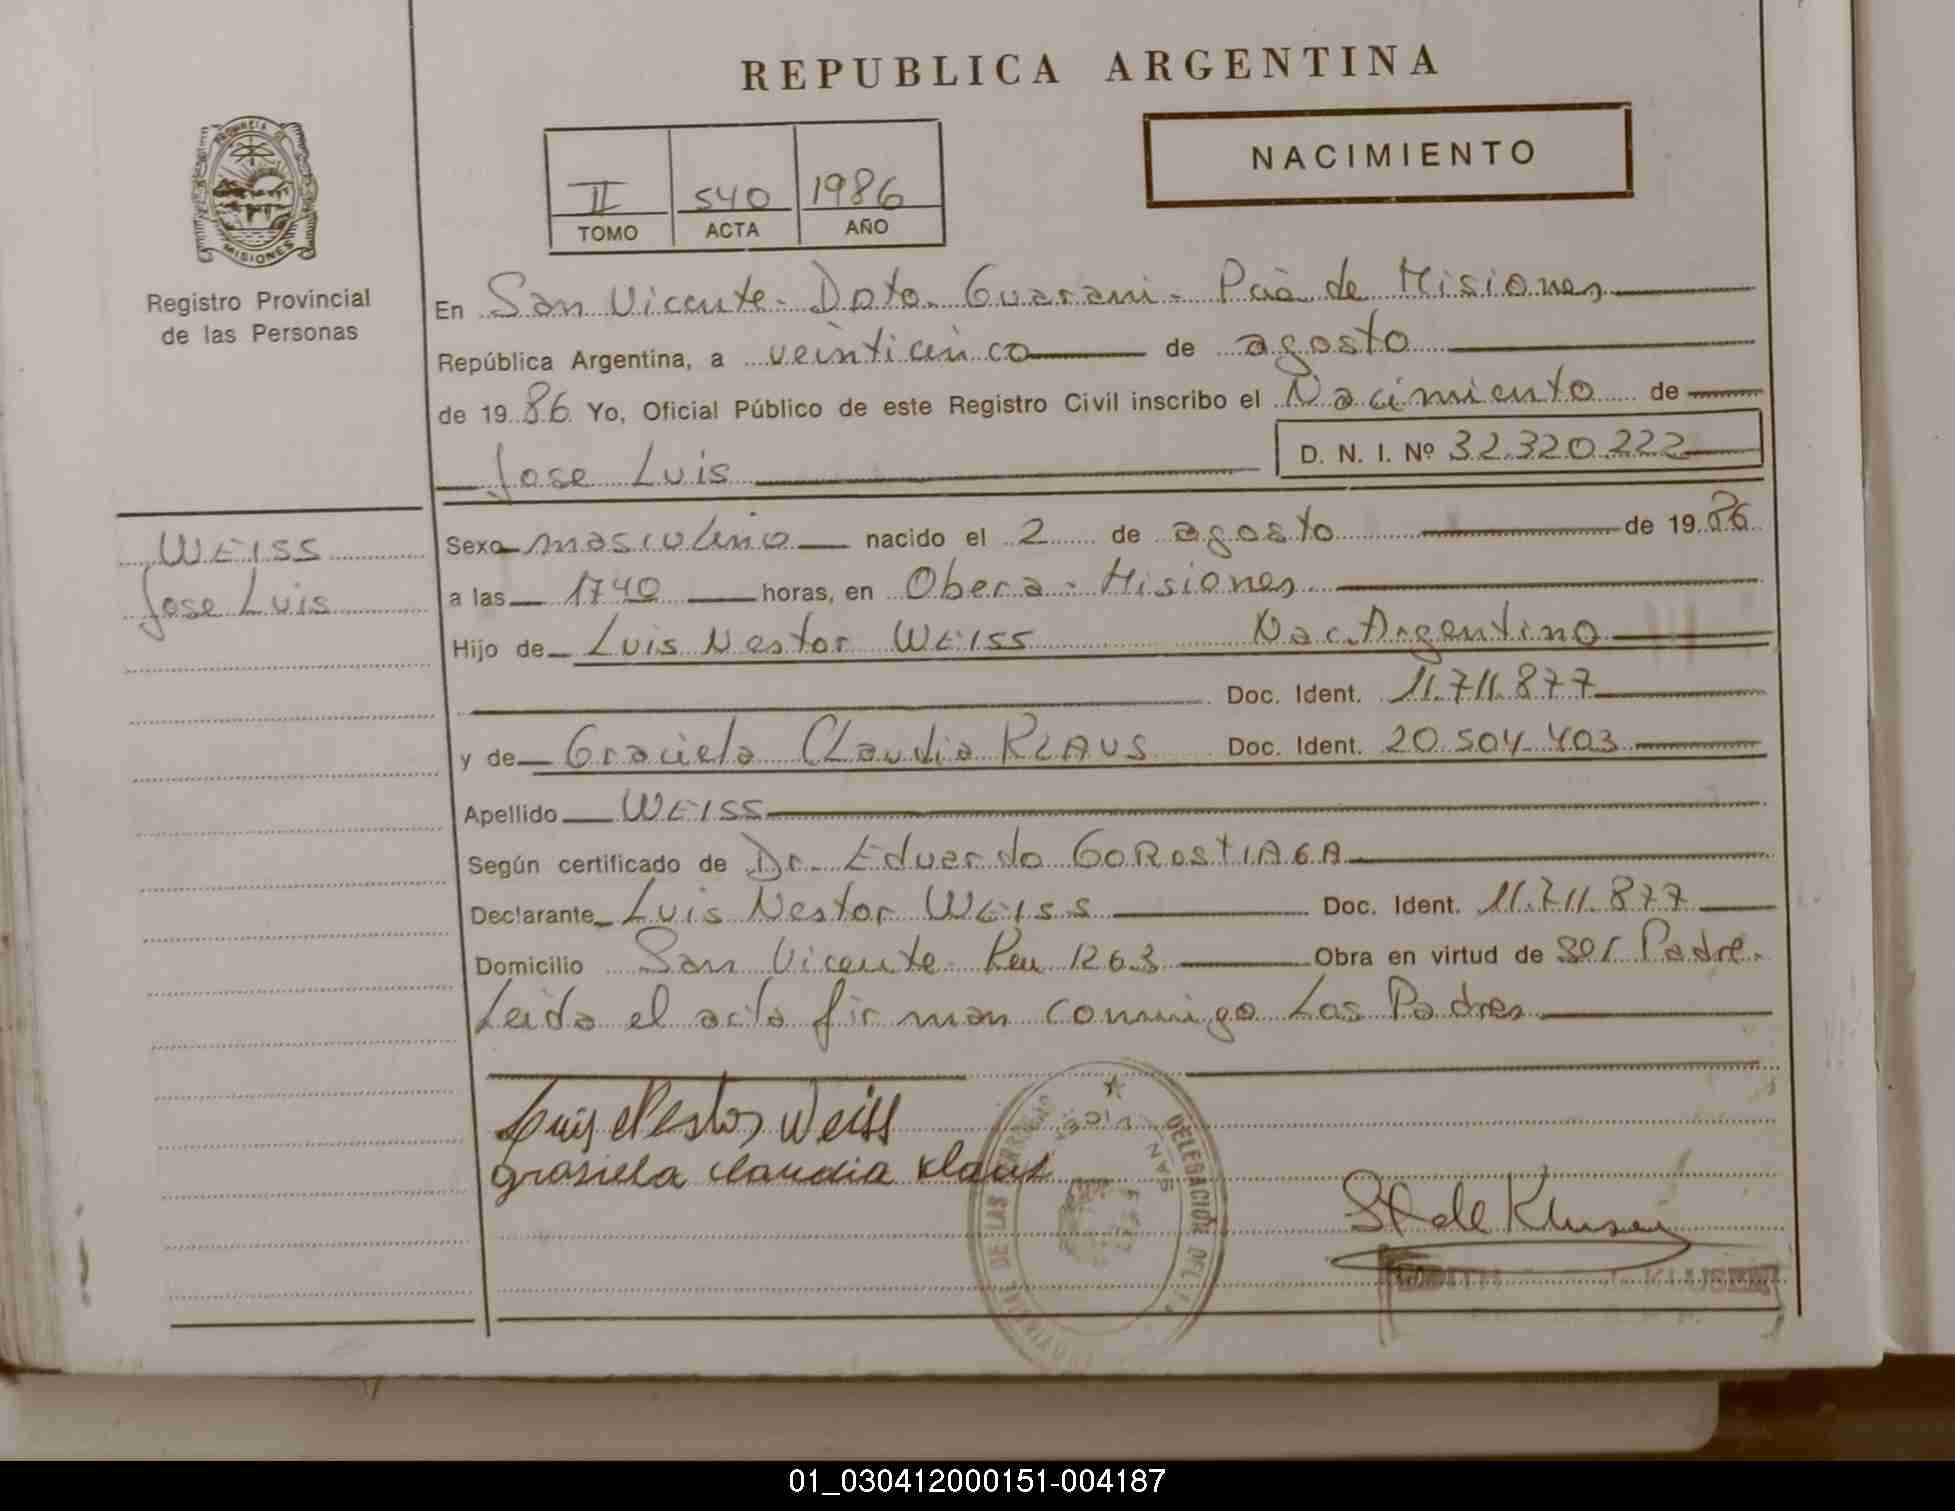 REPUBLICA ARGENTINA
PROVINCIA DE
MISIONES
Registro Provincial
de las Personas
NACIMIENTO
II 540 1986
TOMO ACTA AÑO
En San Vicente - Dpto. Guarani - Pcia de Misiones
República Argentina, a veinticinco de agosto
de 1986 Yo, Oficial Público de este Registro Civil inscribo el Nacimiento de
Jose Luis D. N. I. Nº 32.320.222
WEISS
Jose Luis
Sexo masculino nacido el 2 de agosto de 1986
a las 1740 horas, en Obera - Misiones
Hijo de Luis Nestor WEISS Nac. Argentino
Doc. Ident. 11.711.877
y de Graciela Claudia KLAUS Doc. Ident. 20.504.403
Apellido WEISS
Según certificado de Dr. Eduardo GOROSTIAGA
Declarante Luis Nestor WEISS Doc. Ident. 11.711.877
Domicilio San Vicente - Km 1263 Obra en virtud de ser Padre.
Leida el acta firman conmigo Los Padres
Luis Nestor Weiss
grasiela claudia klaus
DELEGACION DEL
SAN VICENTE
DE LAS
01_030412000151-004187